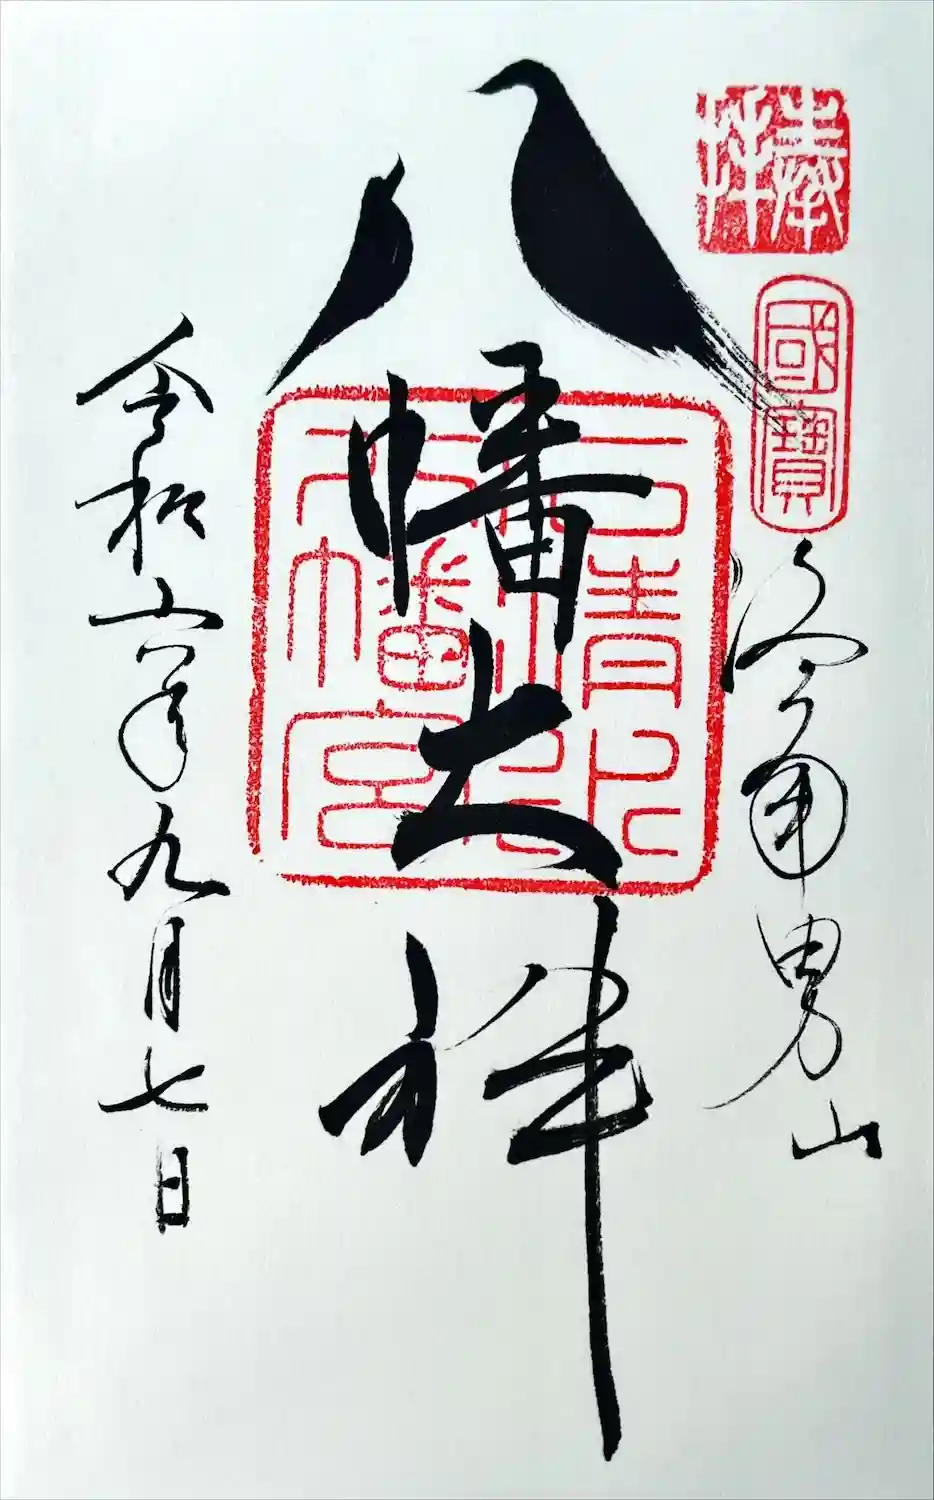 奉拝
國寶
洛南男山
八幡大神
石清水八幡宮
令和六年九月七日